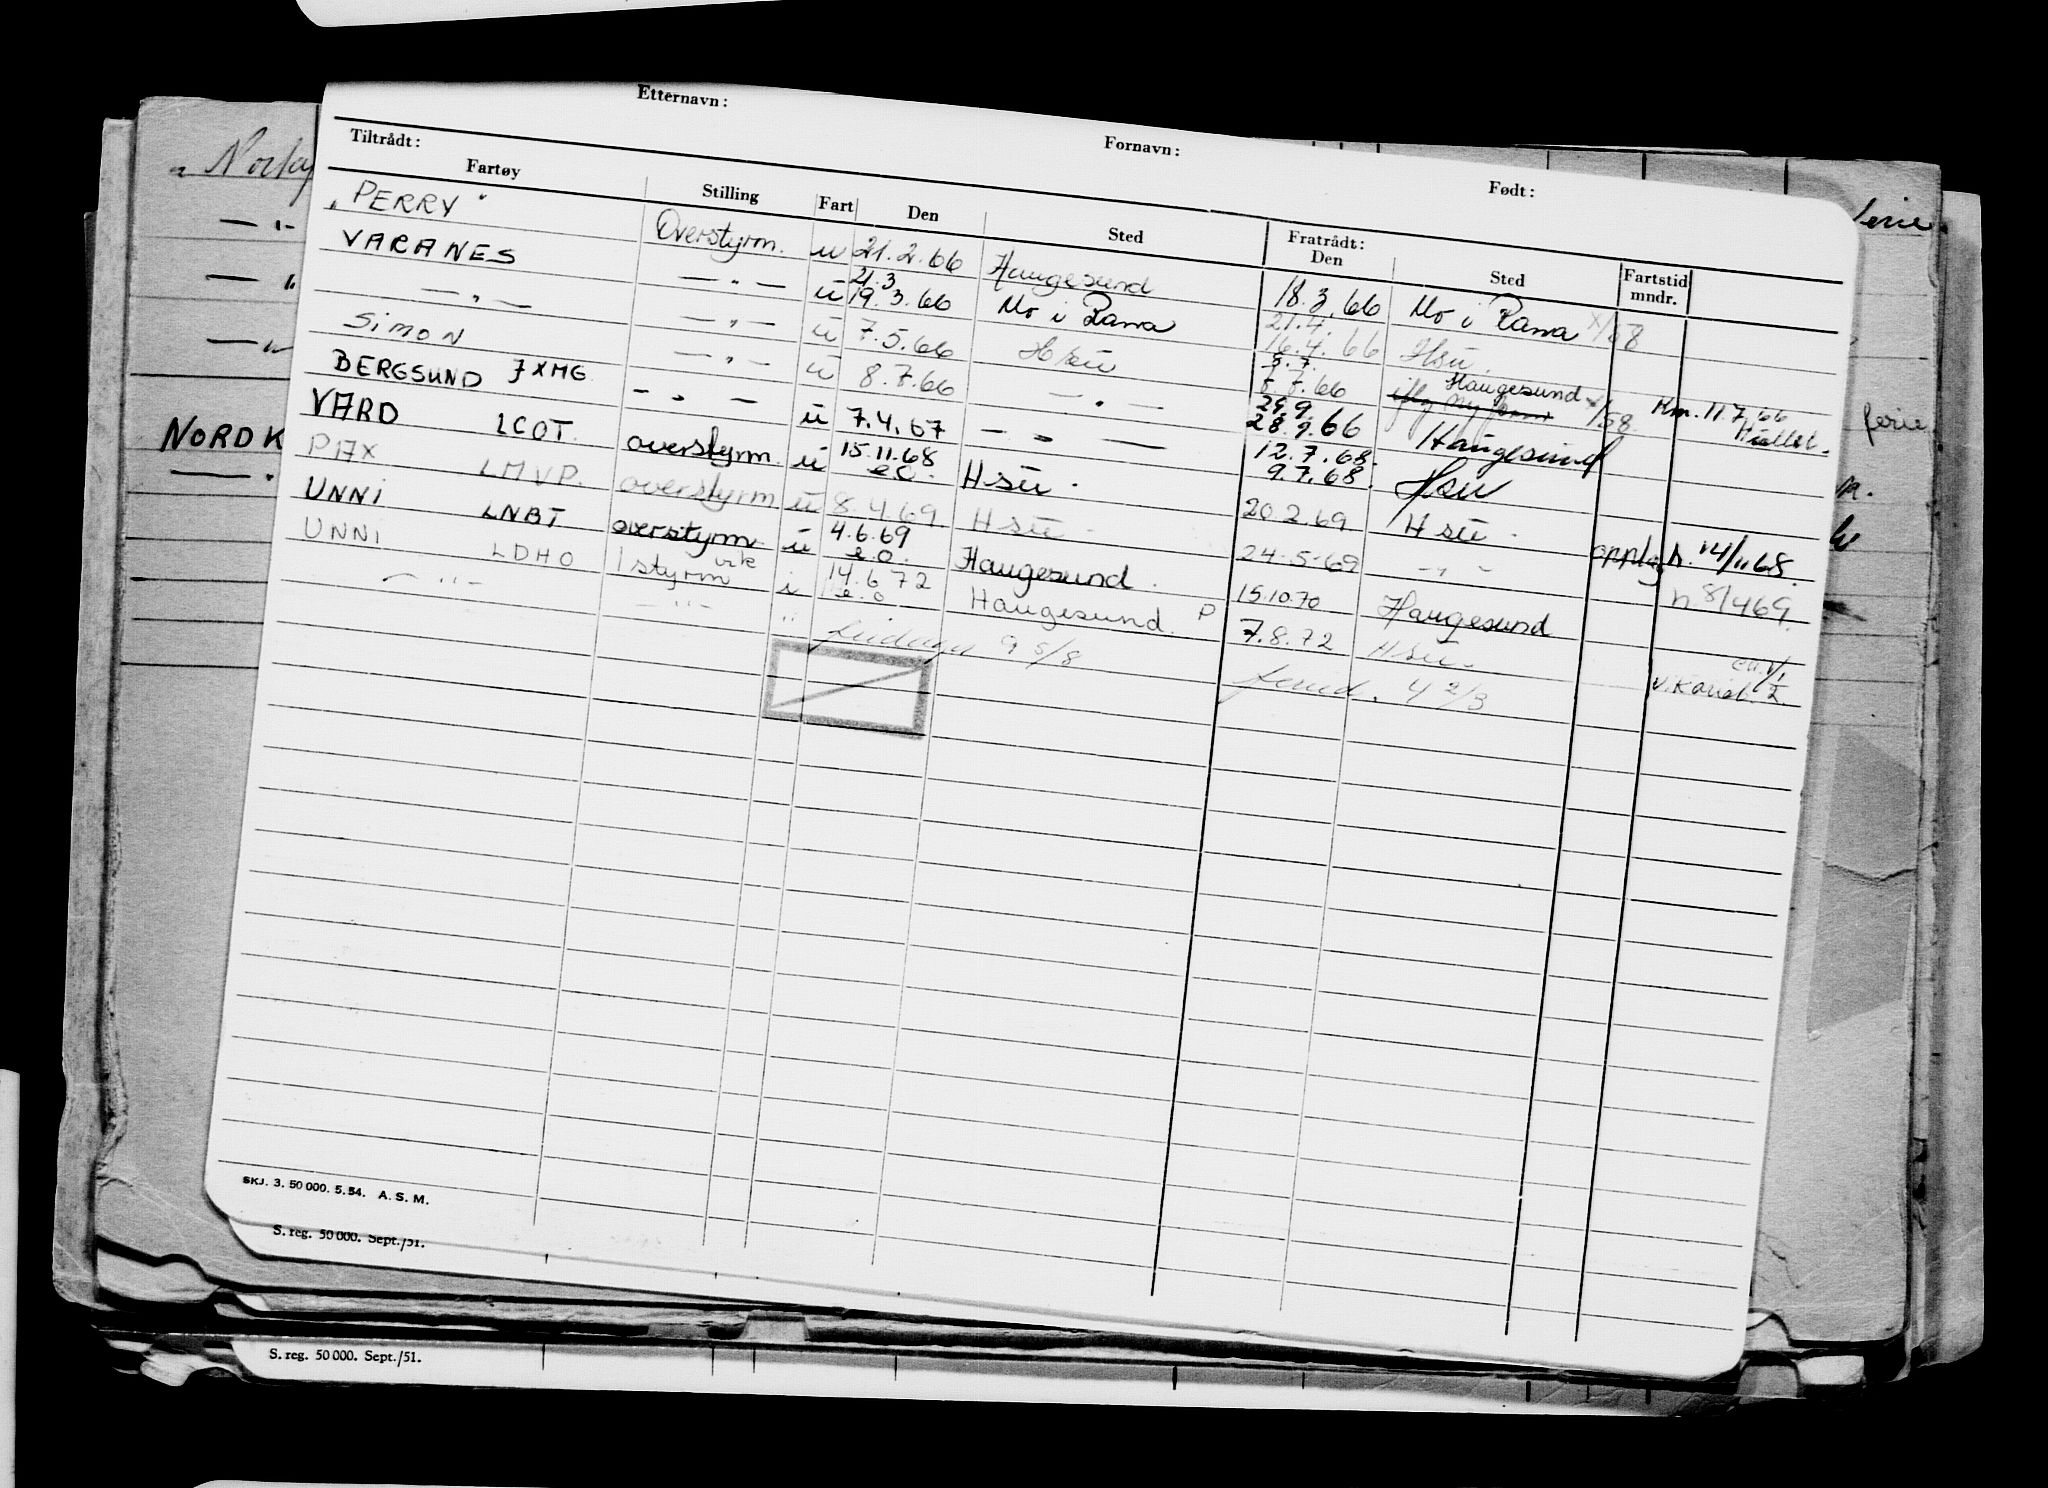 Etternavn: Fornavn: Født:
Tiltrådt: Fratrådt:
Fartøy Stilling Fart Den Sted Den Sted Fartstid mndr.
„PERRY" Overstyrm. u 21.2.66 Haugesund 18.3.66 Mo i Rana
VARANES — " — u 21.3 19.3.66 Mo i Rana 21.4. 16.4.66 Hsu. x/58
— " — — " — u 7.5.66 Hsu 5.7. 7.7.66 Haugesund
SIMON — " — u 8.7.66 — " — 29.9. 28.9.66 Haugesund x/58 Km. 11.7.66
BERGSUND JXMG — " — u 7.4.67 — " — 12.7.68. 9.7.68. Hsu
VARD LCOT overstyrm u 15.11.68 e.o. Hsu. 20.2.69 Hsu. oppl. h. 14/11 68.
PAX LMVP. overstyrm u 8.4.69 Hsu - 24.5.69 — " — h. 8/4 69.
UNNI LNBT overstyrm u 4.6.69 e.o. Haugesund. 15.10.70 Haugesund
UNNI LDHO 1 styrm vik i 14.6.72 e.o Haugesund. P 7.8.72 Hsu.
— " — — " — " 9 5/8 4 2/3
„
— " —
— " —
— " —
NORDK
— " —
ferie
ferie
SKJ. 3. 50 000. 5. 54. A. S. M.
S. reg. 50 000. Sept./51.
S. reg. 50 000. Sept./51.